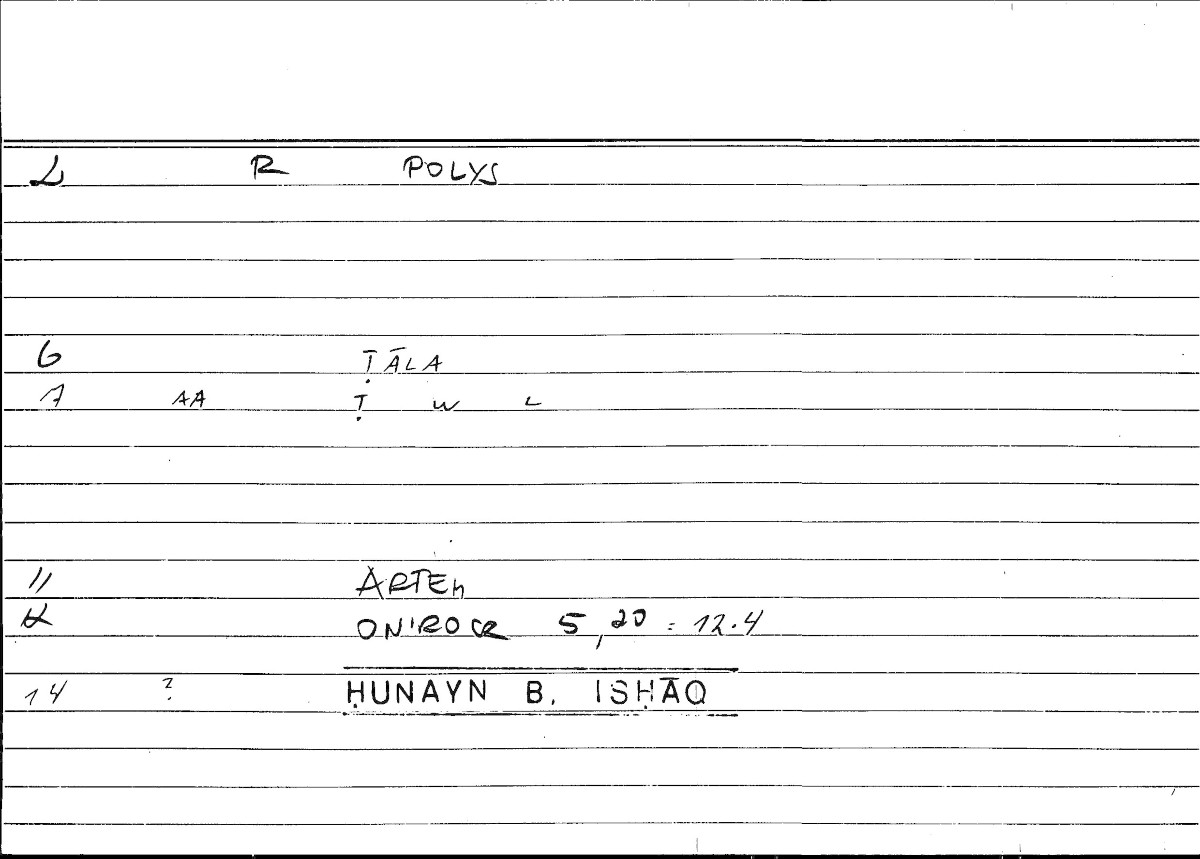 2 R POLYS
6 ṬĀLA
7 AA Ṭ W L
11 ARTEM
12 ONIROCR 5,20 : 12.4
14 ? ḤUNAYN B. ISḤĀQ